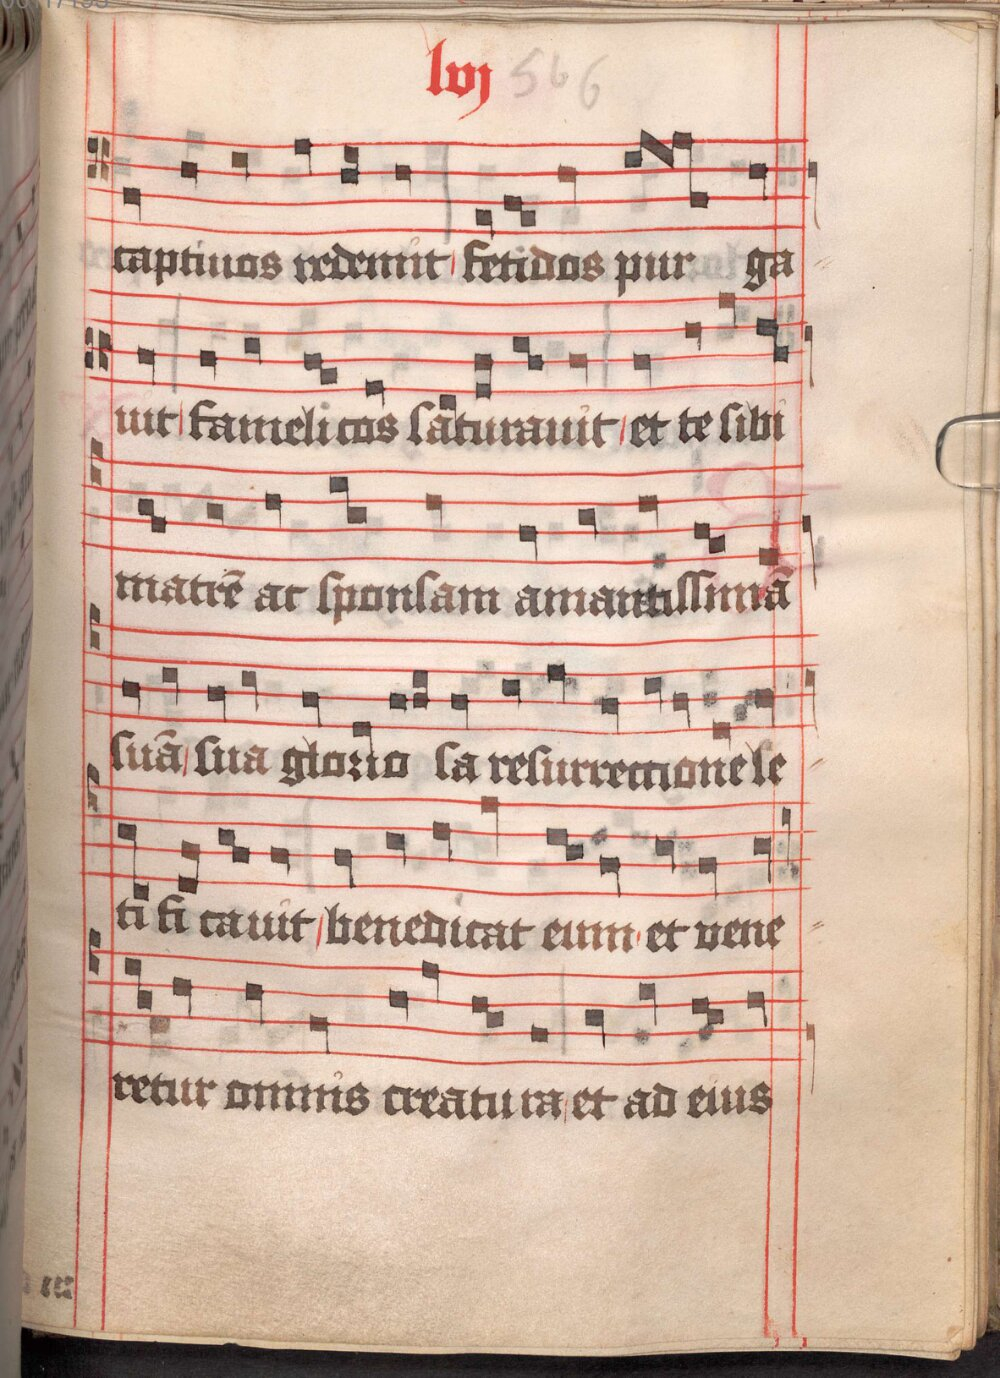 lvj 566
captiuos redemit fetidos pur ga
uit famelicos saturauit et te sibi
matrē ac sponsam amantissimā
suā sua glorio sa resurrectione le
ti fi ca uit benedicat eum et vene
retur omnis creatura et ad eius